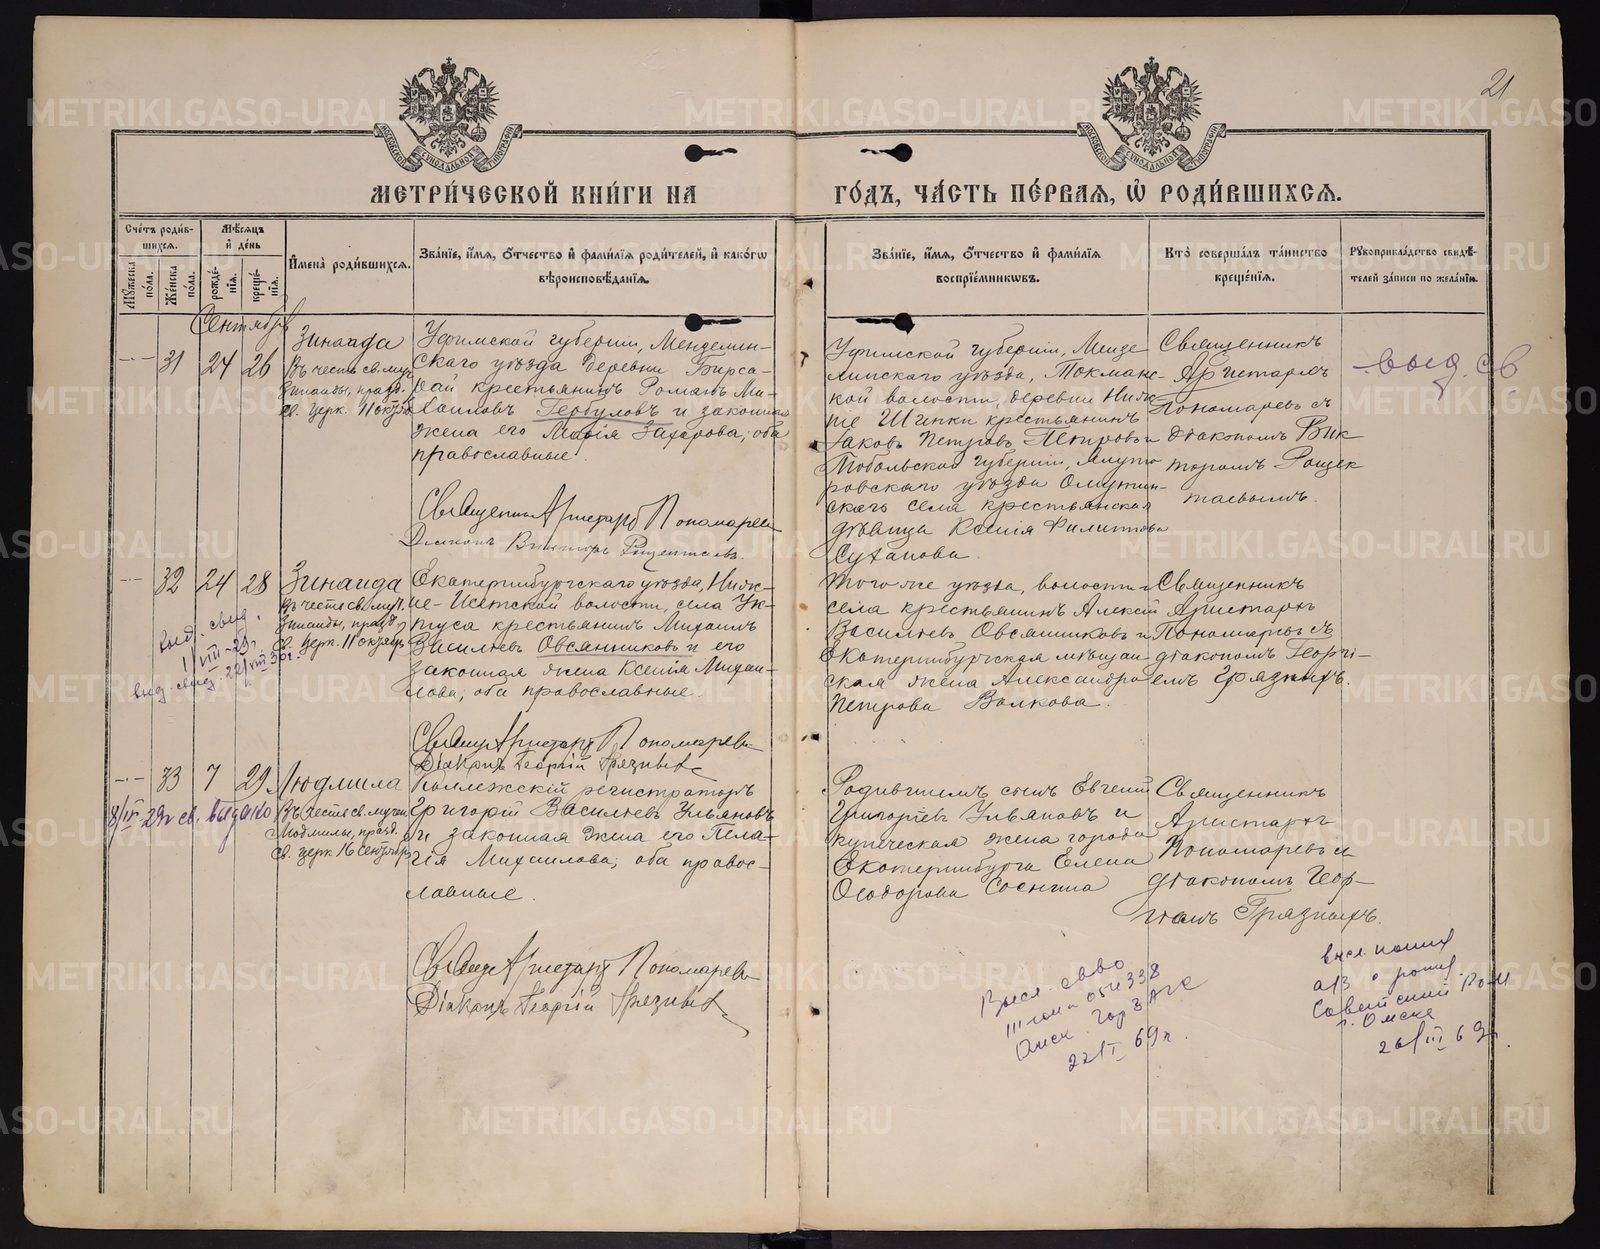 21
МОСКОВСКОЙ СѴНОДАЛЬНОЙ ТИПОГРАФІИ
МОСКОВСКОЙ СѴНОДАЛЬНОЙ ТИПОГРАФІИ
МЕТРИ́ЧЕСКОЙ КНИ́ГИ НА ГО́ДЪ, ЧА́СТЬ ПЕ́РВАЯ, Ѡ҆ РОДИ́ВШИХСЯ.
Сче́тъ роди́в-
шихся.
Му́жеска по́ла.
Же́нска по́ла.
Мѣ́сяцъ
и҆ де́нь
рожде́-
нїя.
креще́-
нїя.
И҆мена̀ роди́вшихся.
Зва́нїе, и҆́мя, о҆́тчество и҆ фами́лїя роди́телей, и҆ како́гѡ
вѣроисповѣ́данїя.
Зва́нїе, и҆́мя, о҆́тчество и҆ фами́лїя
воспрїе́мникѡвъ.
Кто̀ соверша́лъ та́инство
креще́нїя.
Рꙋкоприкла́дство свидѣ́-
телей за́писи по жела́нїю.
Сентябрь
31 24 26
Зинаида
Въ честь св. муч.
Зинаиды, празд.
св. церк. 11 октяб.
Уфимской губерніи, Мензелин-
скаго уѣзда деревни Бирса-
вай крестьянинъ Романъ Ми-
хаиловъ Гербуловъ и законная
жена его Марія Захарова, оба
православные.
Священникъ Аристархъ Пономаревъ
Діаконъ Викторъ Ращектаевъ.
Уфимской губерніи, Мензе-
линскаго уѣзда, Токманс-
кой волости, деревни Ниж-
ніе Шипки крестьянинъ
Іаковъ Петровъ Петровъ и
Тобольской губерніи, Ялуто-
ровскаго уѣзда Омутин-
скаго села крестьянская
дѣвица Ксенія Филиппова
Суханова.
Священникъ
Аристархъ
Пономаревъ съ
діакономъ Вик-
торомъ Ращек-
таевымъ.
выд. св
32 24 28
Зинаида
въ честь св. муч.
Зинаиды, празд.
св. церк. 11 октября
выд. свид.
1/VIII-29г.
выд. свид. 22/VIII 30г.
Екатеринбургскаго уѣзда, Ниж-
не-Исетской волости, села Ук-
туса крестьянинъ Михаилъ
Васильевъ Овсянниковъ и его
законная жена Ксенія Михаи-
лова, оба православные.
Свящ. Аристархъ Пономаревъ
Діаконъ Георгій Грязныхъ
Того-же уѣзда, волости и
села крестьянинъ Алексѣй
Васильевъ Овсянниковъ и
Екатеринбургская мѣщан-
ская жена Александра
Петрова Волкова.
Священникъ
Аристархъ
Пономаревъ съ
діакономъ Георгі-
емъ Грязныхъ.
33 7 29
8/IV-29г св. выдано
Людмила
Въ честь св. мучен.
Людмилы, празд.
св. церк. 16 сентября
Коллежскій регистраторъ
Григорій Васильевъ Ульяновъ
и законная жена его Пела-
гія Михаилова; оба правос-
лавные.
Свящ. Аристархъ Пономаревъ
Діаконъ Георгій Грязныхъ
Родившемъ сынъ Евгеній
Григорьевъ Ульяновъ и
купеческая жена города
Екатеринбурга Елена
Ѳеодорова Соснина
Священникъ
Аристархъ
Пономаревъ и
діакономъ Геор-
гіемъ Грязныхъ.
Высл. св-во
054338
Омск. Гор ЗАГС
22/I 69г.
высл. копия
а/з о рожд.
Советский Р-н
г. Омска
26/III 69г.
METRIKI.GASO-URAL.RU